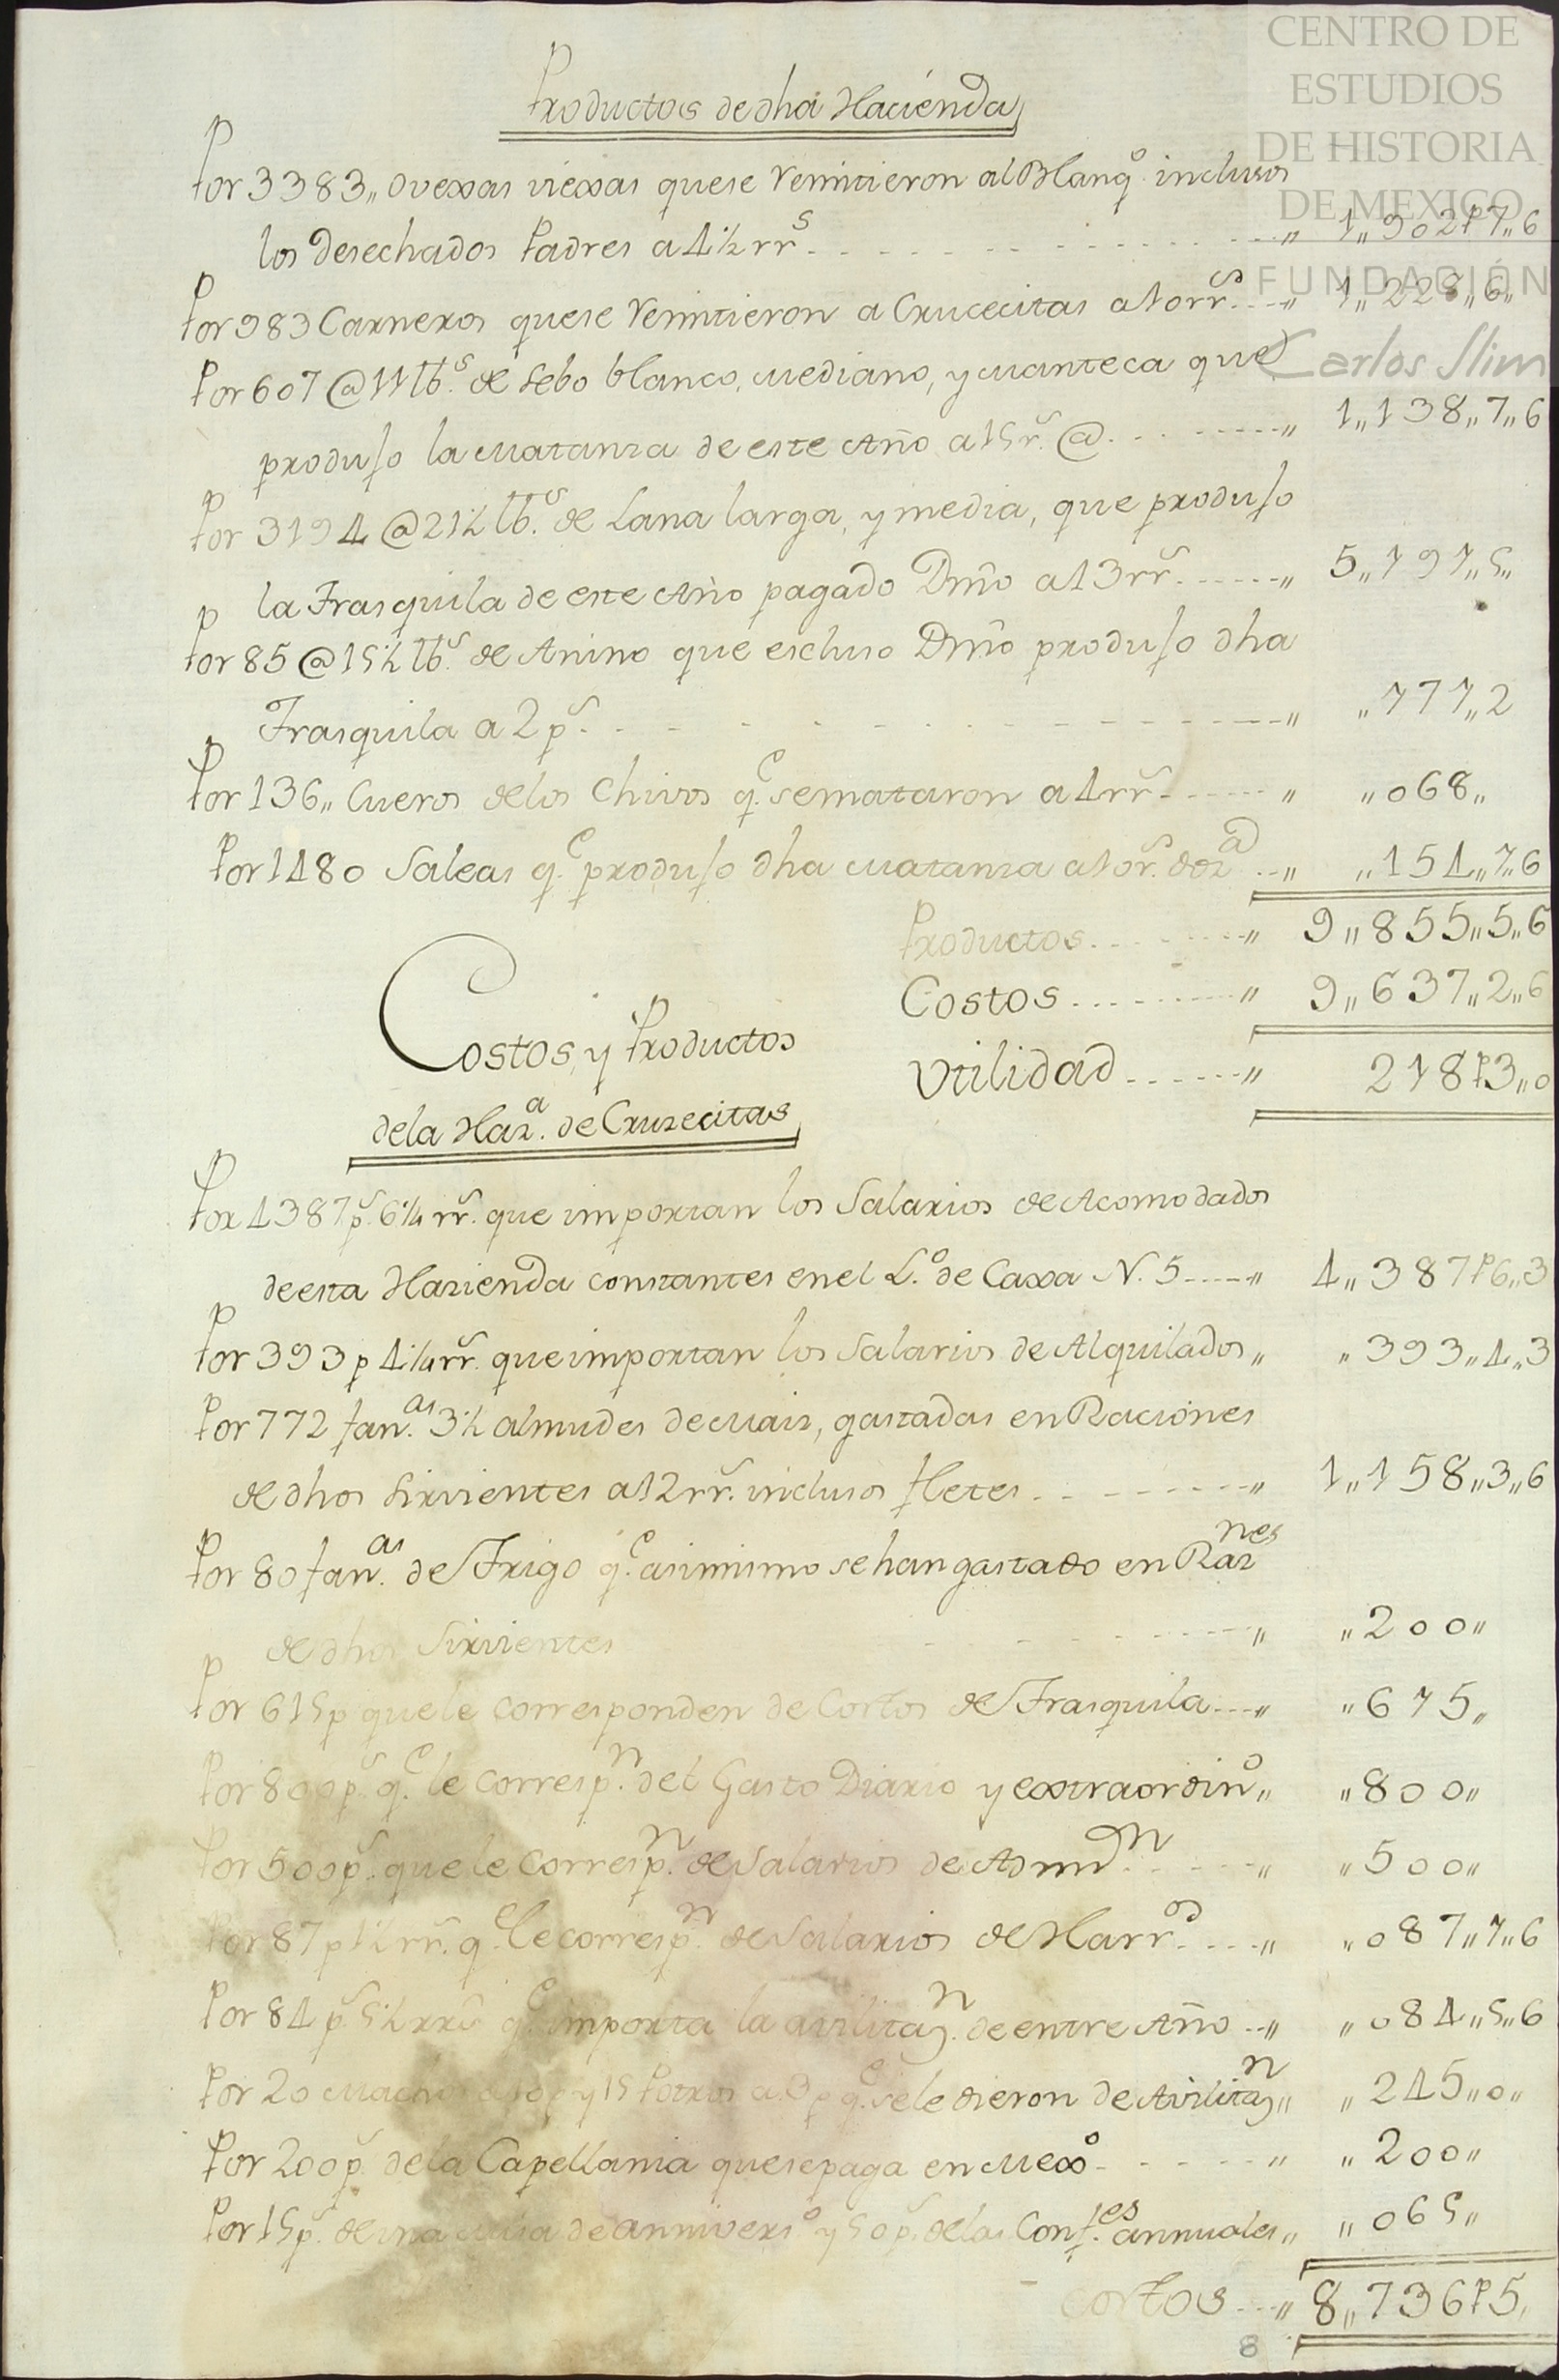 CENTRO DE
ESTUDIOS
DE HISTORIA
DE MEXICO
FUNDACIÓN
Carlos Slim
Productos de dha Haciénda
Por 3383,, Ovexas viexas que se remitieron al Blanqº. inclusos
los desechados Padres a 4½ rrˢ. - - - ,, 1,,902p7,,6
Por 983 Carneros que se remitieron a Crucecitas a 10 rrˢ. - - - ,, 1,,228,,6,,
Por 607 @ 11 lbˢ. de Sebo blanco, mediano, y manteca que
produjo la matanza de este Año a 15 rˢ. @. - - - ,, 1,,138,,7,,6
Por 3194 @ 21½ lbˢ. de Lana larga, y media, que produjo
la Trasquila de este Año pagado Dmô a 13 rrˢ. - - - ,, 5,,191,,5,,
Por 85 @ 15½ lbˢ. de Anino que escluso Dmô produjo dha
Trasquila a 2 pˢ. - - - ,, ,,171,,2
Por 136,, Cueros de los Chivos qᵉ. se mataron a 4 rrˢ. - - - ,, ,,068,,
Por 1480 Saleas qᵉ. produjo dha matanza a 10 rˢ. dozᵃ. - - ,, ,,154,,1,,6
Productos - - - ,, 9,,855,,5,,6
Costos - - - ,, 9,,637,,2,,6
Utilidad - - - ,, 218p3,,0
Costos, y Productos
de la Hazᵃ. de Cruzecitas
Por 4387 pˢ. 6¼ rrˢ. que importan los Salarios de Acomodados
de esta Hazienda constantes en el Lº. de Caxa N. 5 - - - ,, 4,,387p6,,3
Por 393 p 4¼ rrˢ. que importan los Salarios de Alquilados ,, ,,393,,4,,3
Por 772 fanᵃˢ. 3½ almudes de Maiz, gastadas en Raciones
de dhos Sirvientes a 12 rrˢ. inclusos fletes - - - ,, 1,,158,,3,,6
Por 80 fanᵃˢ. de Trigo qᵉ. asimismo se han gastado en Razⁿᵉˢ
de dhos Sirvientes - - - ,, ,,200,,
Por 615 p que le corresponden de Costos de Trasquila - - - ,, ,,615,,
Por 800 pˢ. qᵉ. le correspⁿ. del Gasto Diario y extraordinº ,, ,,800,,
Por 500 pˢ. que le correspⁿ. de Salarios de Admôⁿ. - - - ,, ,,500,,
Por 87 p 1½ rrˢ. qᵉ. le correspⁿ. de Salarios de Harrᵒˢ. - - - ,, ,,087,,1,,6
Por 84 pˢ. 5½ rrˢ qᵉ. importa la avilitazⁿ. de entre Año - - ,, ,,084,,5,,6
Por 20 Machos a 10 p y 15 Potros a 3 p qᵉ. se le dieron de Avilitazⁿ ,, ,,245,,0,,
Por 200 pˢ. de la Capellania que se paga en Mexº - - - ,, ,,200,,
Por 15 pˢ. de una misa de anniversº. y 50 pˢ. de las Confᵉˢ. annuales ,, ,,065,,
Costos - - - ,, 8,,736p5,,
8